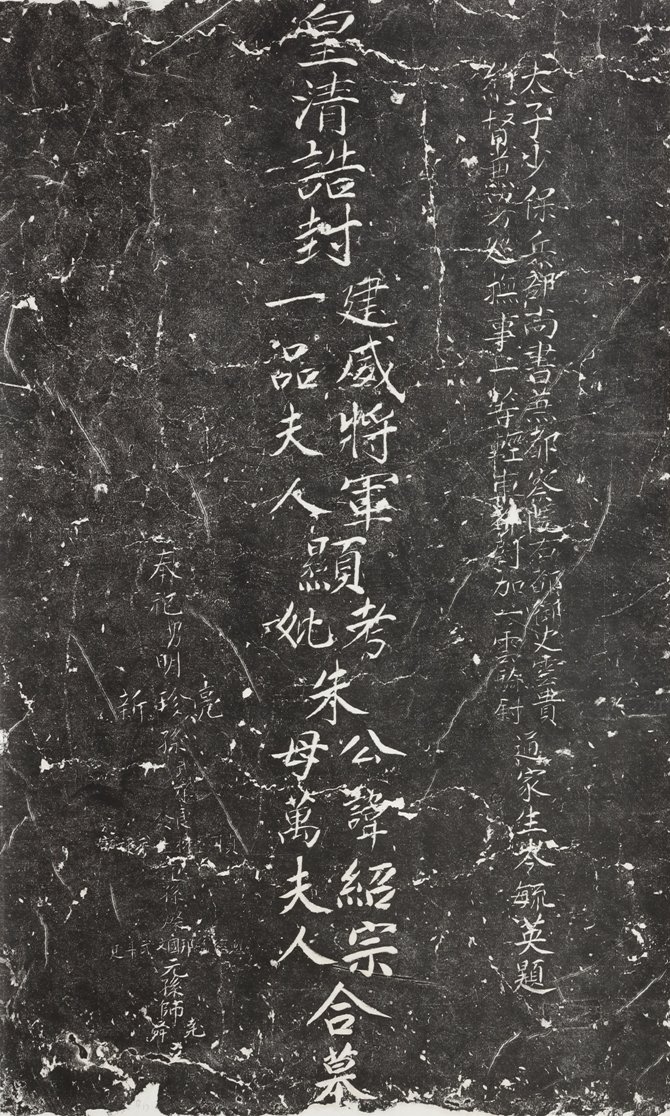 太子少保兵部尚書兼都察院右都御史雲貴
總督兼署巡撫事一等輕車都尉加一雲騎尉
通家生岑毓英題
皇清誥封
建威將軍
一品夫人
顯
考
妣
朱
公諱紹宗
母萬夫人
合墓
奉祀男明
亮
珍
新
孫
元孫師
堯
舜